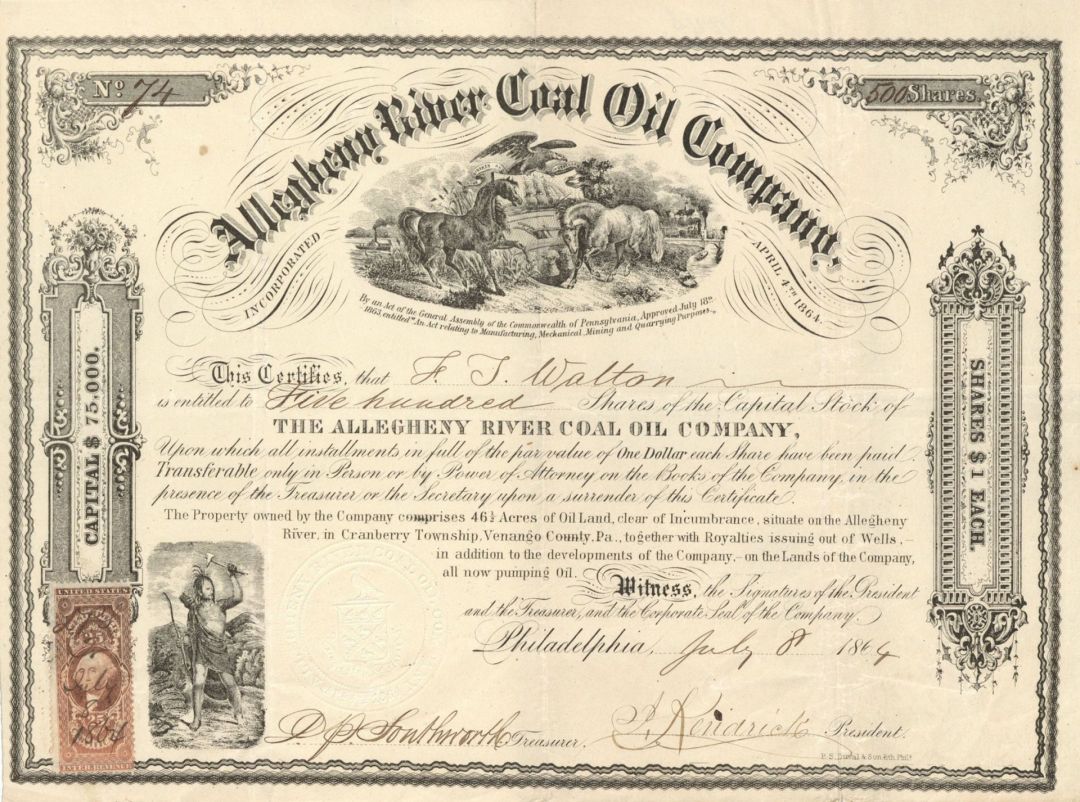 No. 74
500 Shares.
Allegheny River Coal Oil Company.
INCORPORATED APRIL 4TH 1864.
By an Act of the General Assembly of the Commonwealth of Pennsylvania, Approved July 18th
1863, entitled "An Act relating to Manufacturing, Mechanical, Mining and Quarrying Purposes."
CAPITAL $ 75,000.
SHARES $1 EACH.
This Certifies, that F. T. Walton
is entitled to Five hundred Shares of the Capital Stock of
THE ALLEGHENY RIVER COAL OIL COMPANY,
Upon which all installments in full of the par value of One Dollar each Share have been paid.
Transferable only in Person or by Power of Attorney on the Books of the Company, in the
presence of the Treasurer or the Secretary upon a surrender of this Certificate.
The Property owned by the Company comprises 46½ Acres of Oil Land, clear of Incumbrance, situate on the Allegheny
River, in Cranberry Township, Venango County, Pa., together with Royalties issuing out of Wells,—
in addition to the developments of the Company,—on the Lands of the Company,
all now pumping Oil. Witness, the Signatures of the President
and the Treasurer, and the Corporate Seal of the Company.
Philadelphia, July 8 1864
D P Southworth Treasurer. Kendrick President.
P. S. Duval & Son, lith. Phila
UNITED STATES
25
July
1864
INTER. REVENUE